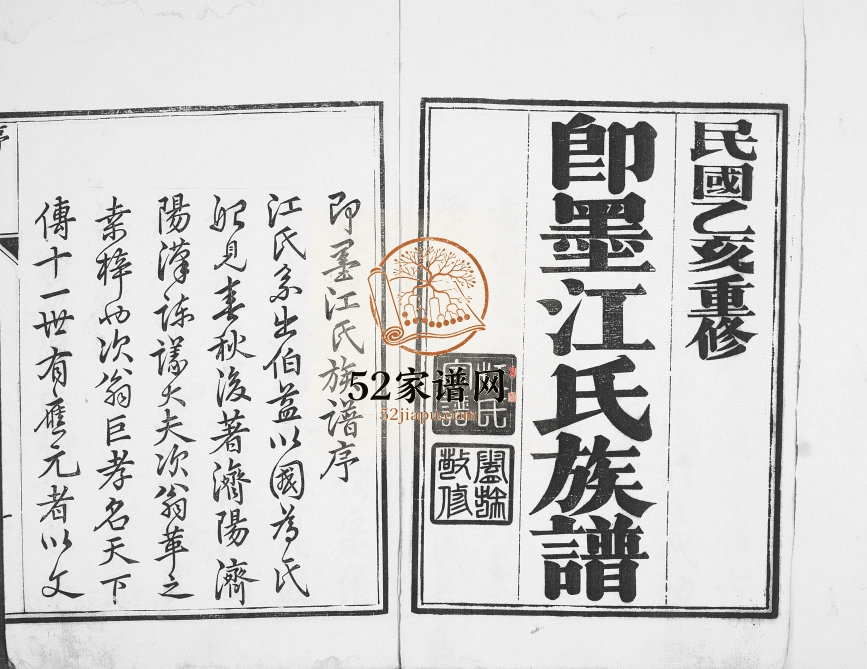 民國乙亥重修
即墨江氏族譜
闔族
敬修
即墨江氏族譜序
江氏系出伯益以國為氏
見春秋後著濟陽濟
陽漢諫議大夫次翁革之
桑梓也次翁巨孝名天下
傳十一世有應元者以文
52家谱网
52jiapu.com
序